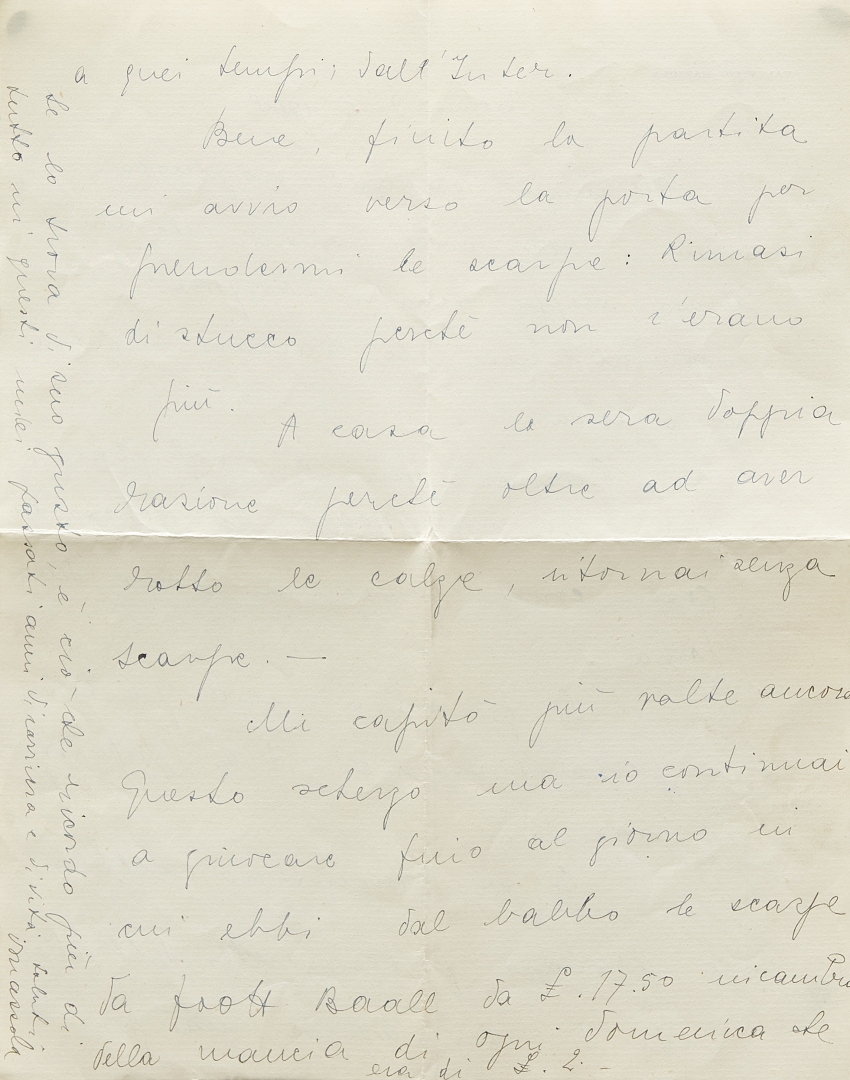 a quei tempi; dall'Inter.
Bene, finito la partita
mi avvio verso la porta per
prendermi le scarpe: Rimasi
di stucco perchè non c'erano
più.
A casa la sera doppia
razione perchè oltre ad aver
rotto le calze, ritornai senza
scarpe. —
Mi capitò più volte ancora
Questo scherzo ma io continuai
a giuocare fino al giorno in
cui ebbi dal babbo le scarpe
da foott Baall da £.17.50 in cambio
della mancia di ogni domenica che
era di £. 2. —
Se lo trova di suo gusto, è ciò che ricordo più di
tutto in questi miei passati anni di carriera e di vita saluti